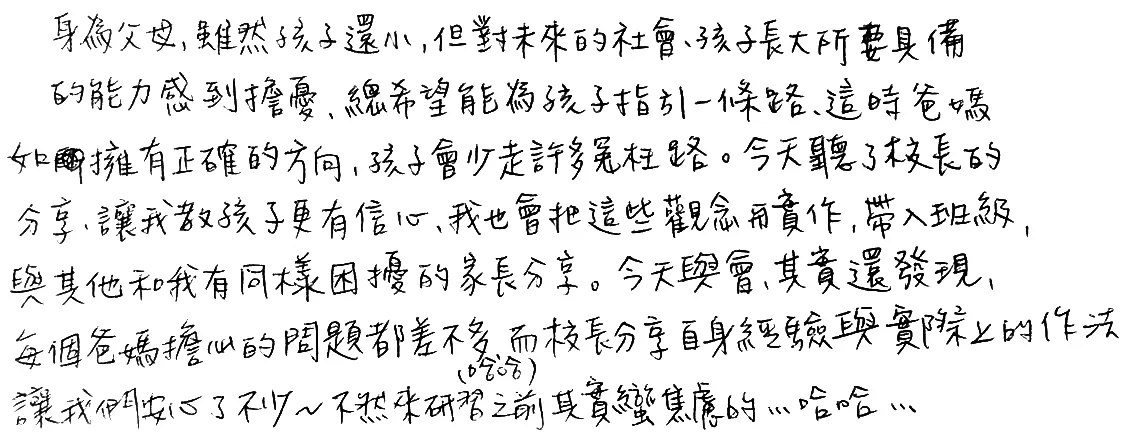 身為父母,雖然孩子還小,但對未來的社會、孩子長大所要具備
的能力感到擔憂、總希望能為孩子指引一條路、這時爸媽
如擁有正確的方向,孩子會少走許多冤枉路。今天聽了校長的
分享,讓我教孩子更有信心、我也會把這些觀念而實作,帶入班級,
與其他和我有同樣困擾的家長分享。今天與會、其實還發現,
每個爸媽擔心的問題都差不多 而校長分享自身經驗與實際上的作法
(哈哈)
讓我們安心了不少~不然來研習之前其實蠻焦慮的…哈哈…